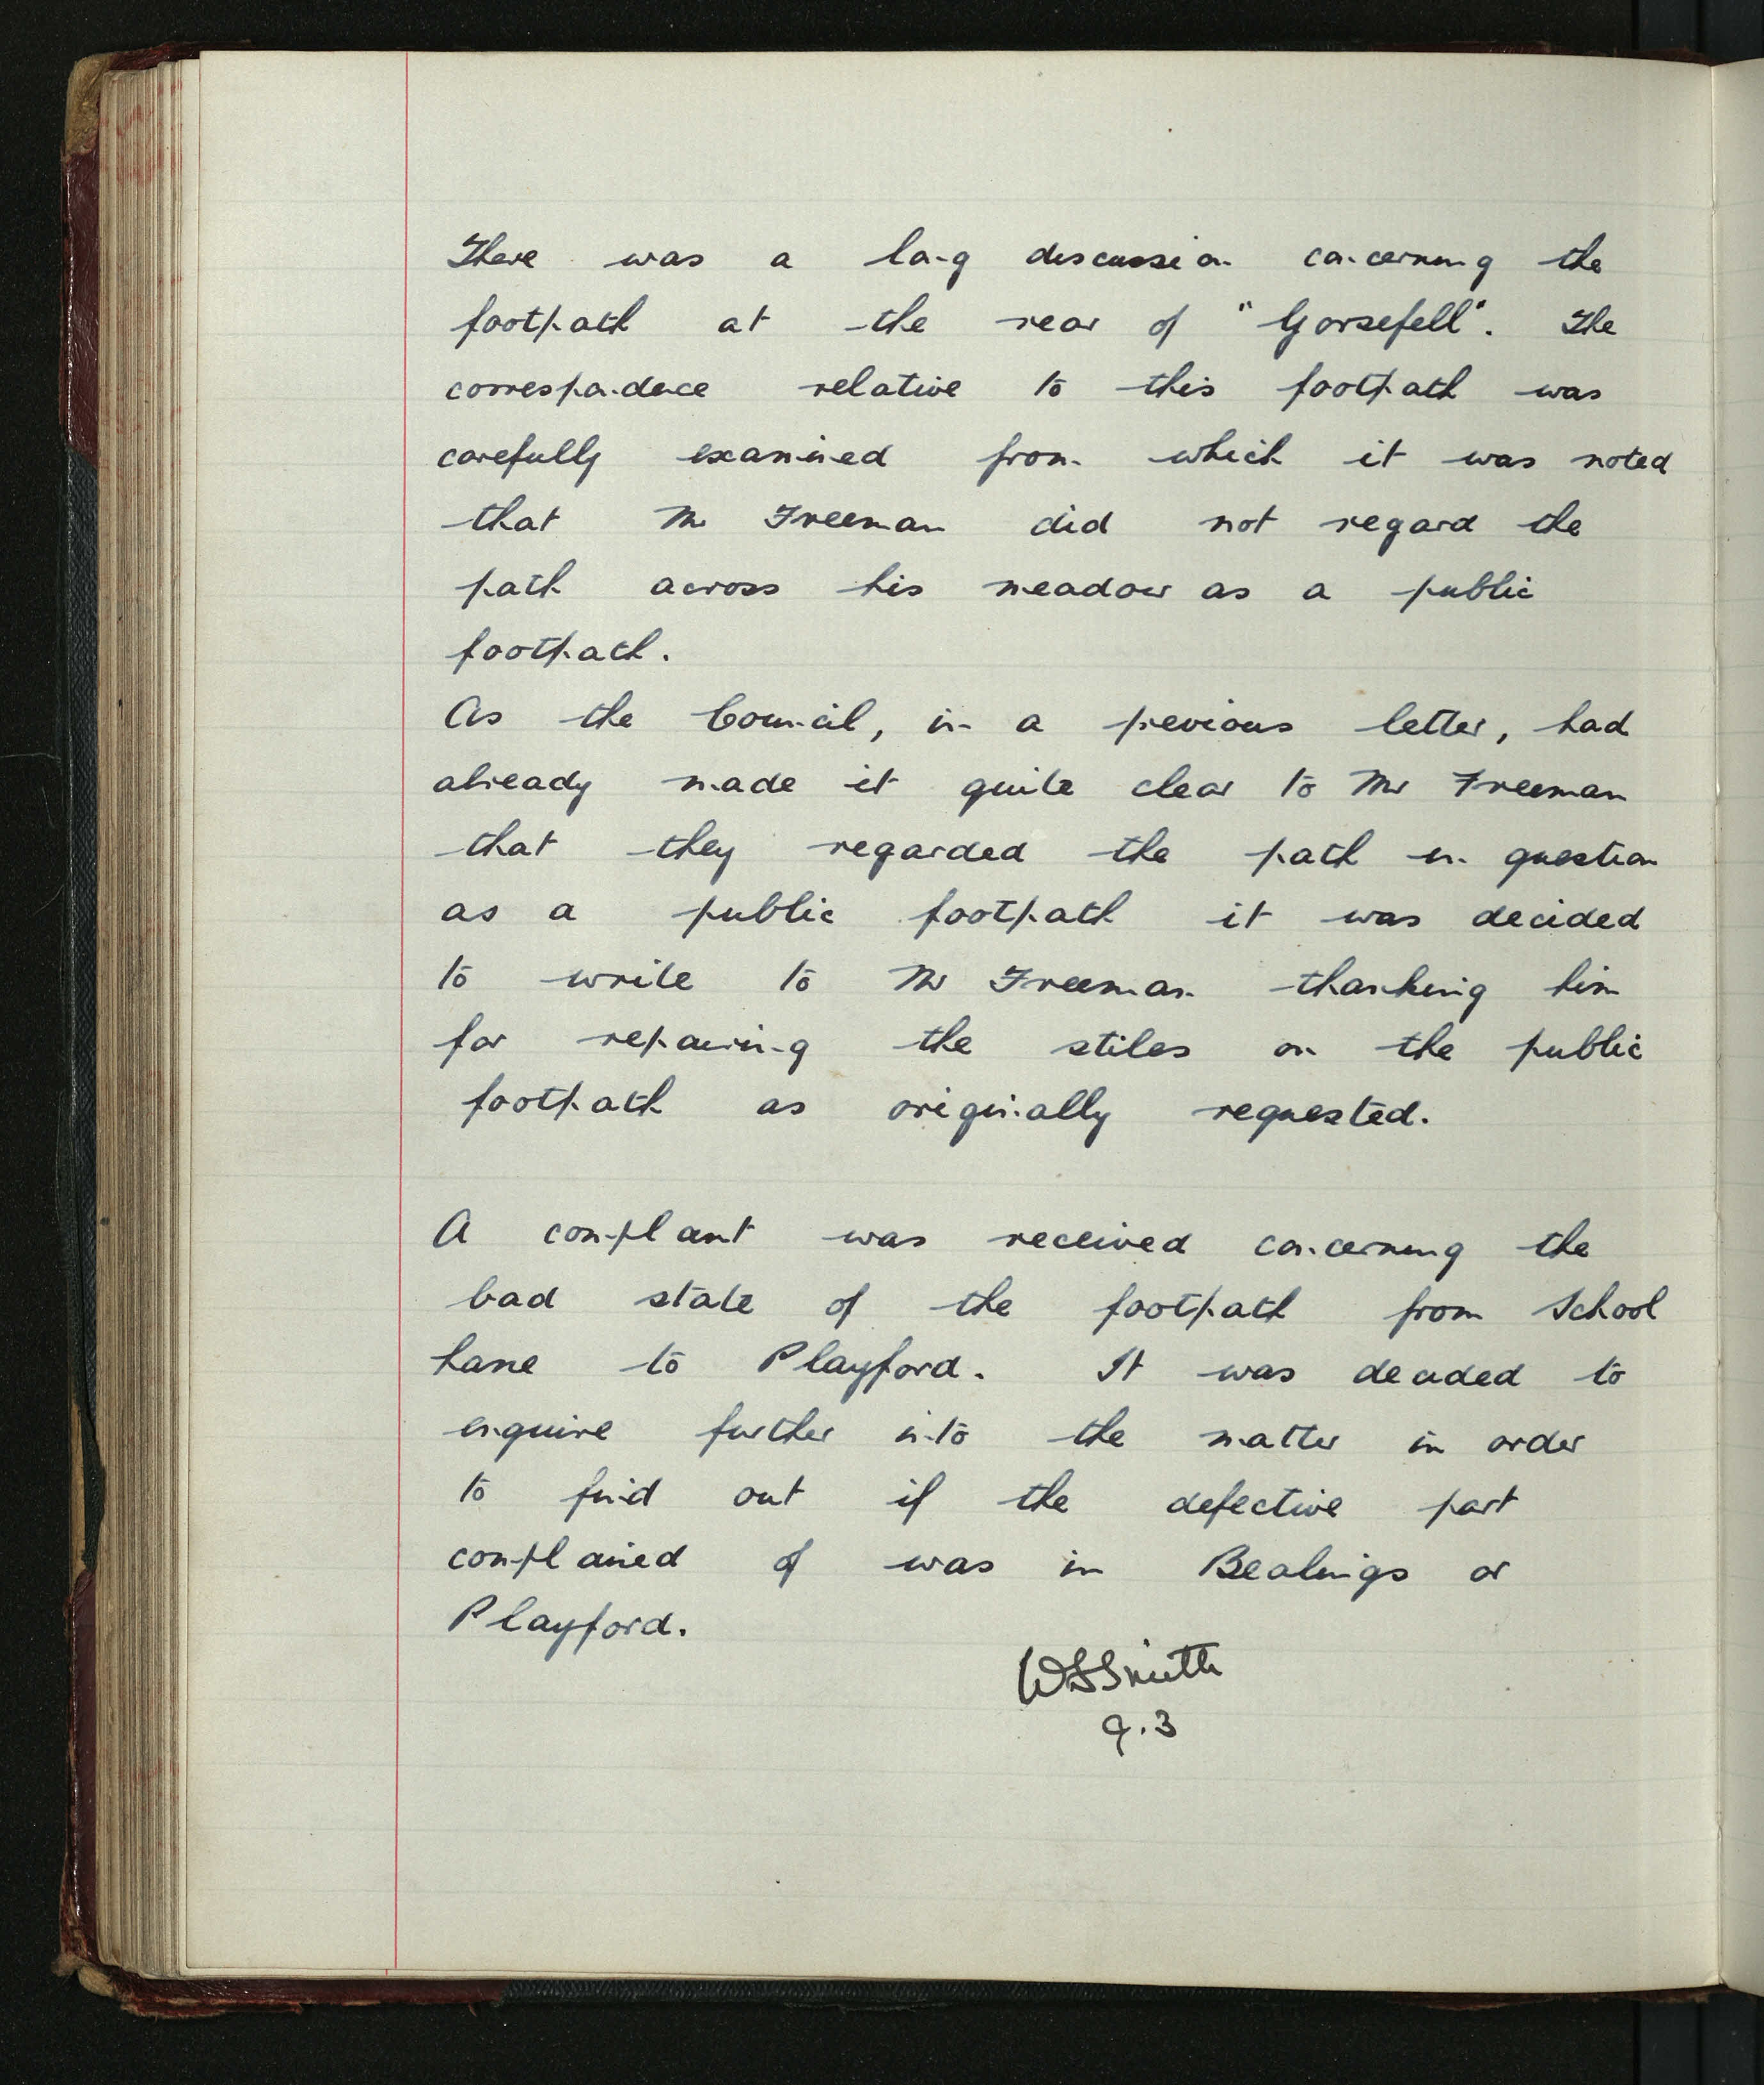 There was a long discussion concerning the
footpath at the rear of "Gorsefell". The
correspondence relative to this footpath was
carefully examined from which it was noted
that Mr Freeman did not regard the
path across his meadow as a public
footpath.
As the Council, in a previous letter, had
already made it quite clear to Mr Freeman
that they regarded the path in question
as a public footpath it was decided
to write to Mr Freeman thanking him
for repairing the stiles on the public
footpath as originally requested.
A complaint was received concerning the
bad state of the footpath from School
Lane to Playford. It was decided to
enquire further into the matter in order
to find out if the defective part
complained of was in Bealings or
Playford.
WSSmith
9.3